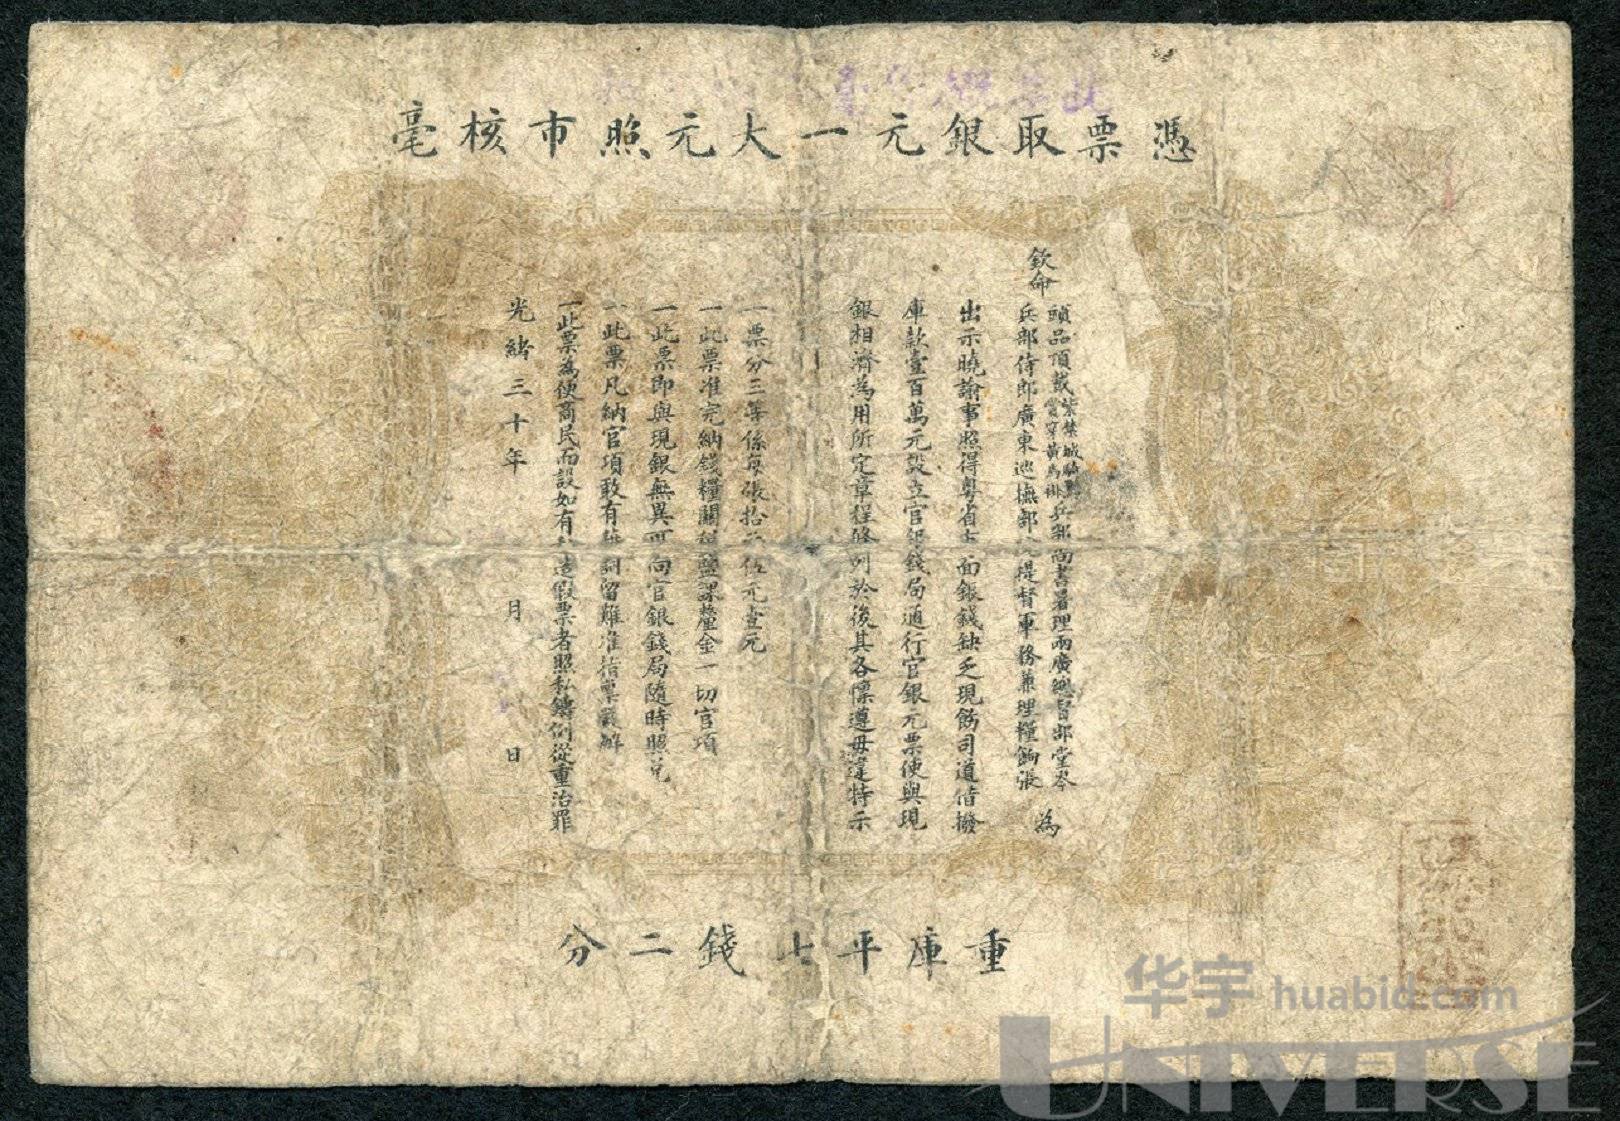 憑票取銀元一大元照市核毫
欽命
頭品頂戴紫禁城騎馬賞穿黃馬褂兵部尚書署理兩廣總督部堂岑
兵部侍郎廣東巡撫部院提督軍務兼理糧餉張
為
出示曉諭事照得粵省市面銀錢缺乏現飭司道借撥
庫款壹百萬元設立官銀錢局通行官銀元票使與現
銀相濟為用所定章程條列於後其各懍遵毋違特示
一票分三等係每張拾元伍元壹元
一此票准完納錢糧關稅鹽課釐金一切官項
一此票即與現銀無異可向官銀錢局隨時照兌
一此票凡納官項敢有藉詞留難准指稟嚴辦
一此票為便商民而設如有 造假票者照私鑄例從重治罪
光緒三十年 月 日
重庫平七錢二分
华宇 huabid.com
UNIVERSE